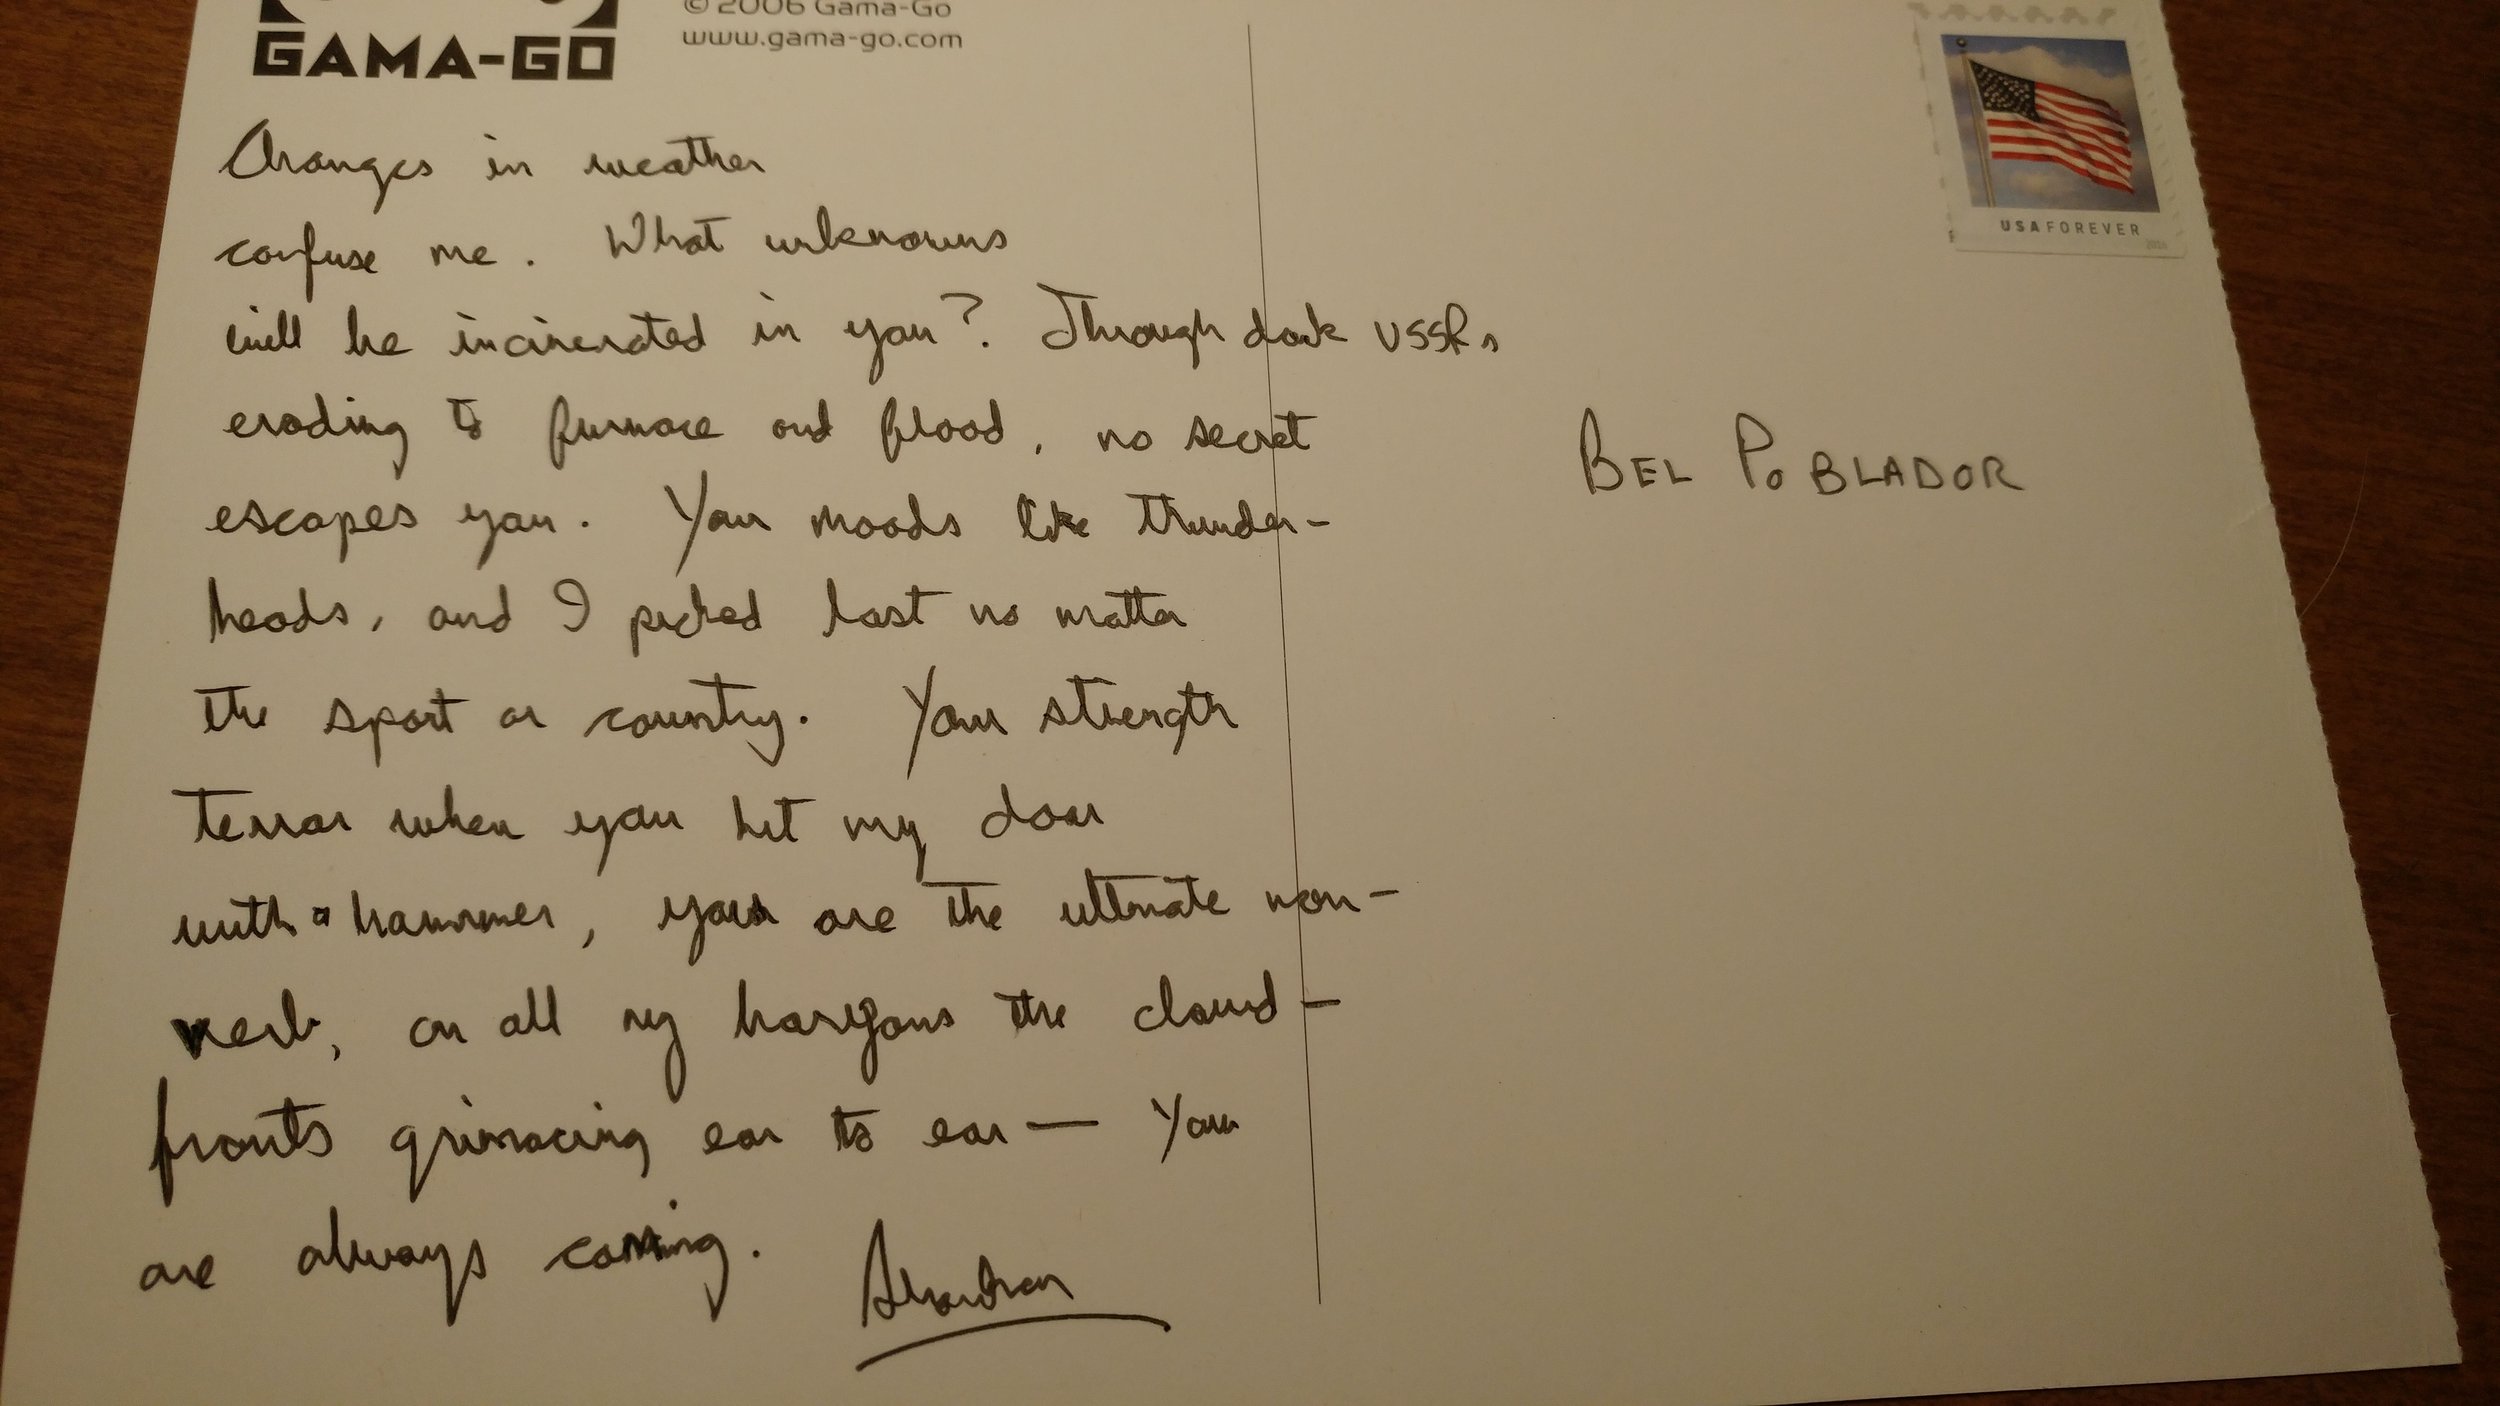 © 2006 Gama-Go
GAMA-GO
www.gama-go.com
Changes in weather
confuse me. What unknowns
will be incinerated in you? Through dark USSRs
eroding to furnace and flood, no secret
escapes you. Your moods like thunder-
heads, and I picked last no matter
the sport or country. Your strength
terror when you hit my door
with a hammer, you are the ultimate non-
verb, on all my horizons the cloud-
fronts grimacing ear to ear — You
are always coming.
BEL POBLADOR
USA FOREVER
2016